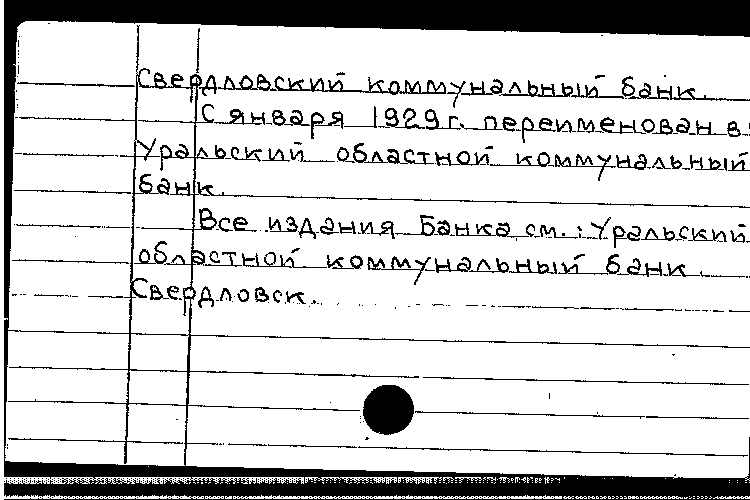 Свердловский коммунальный банк.
С января 1929 г. переименован в:
Уральский областной коммунальный
банк.
Все издания Банка см.: Уральский
областной коммунальный банк.
Свердловск.